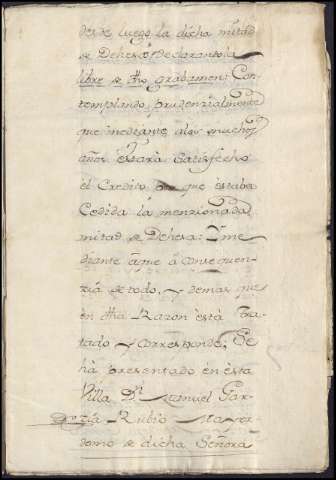 desde luego la dicha mitad
de Dehesa declarandola
libre de dho grabamen: Con
templando prudenzialmente
que mediante a los muchos
años estara satisfecho
el Credito a que estaba
Cedida la menzionada
mitad de Dehesa: I me
diante aque à consequen
zia de todo, y demas que
en dha Razon està tra
tado y correspondo; Se
hà presentado en èsta
Villa Dn Manuel Gar
zia Rubio Mayor
domo de dicha Señora